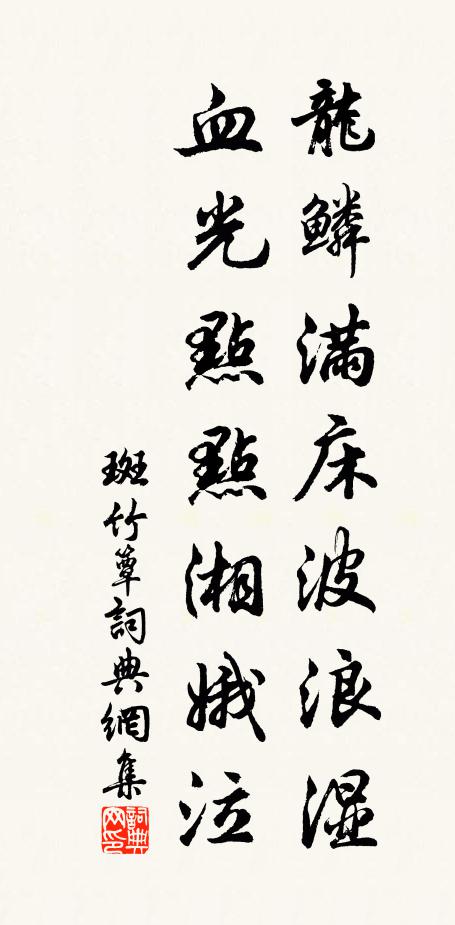 龍鱗滿床波浪濕
血光點點湘娥泣
斑竹簟詞典網集
詞典网印